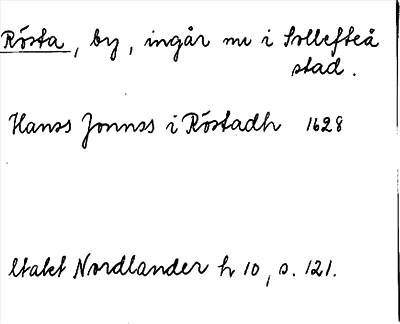 Rösta, by, ingår nu i Sollefteå
stad.
Hanss Jonnss i Röstadh 1628
Citatet Nordlander h 10, s. 121.